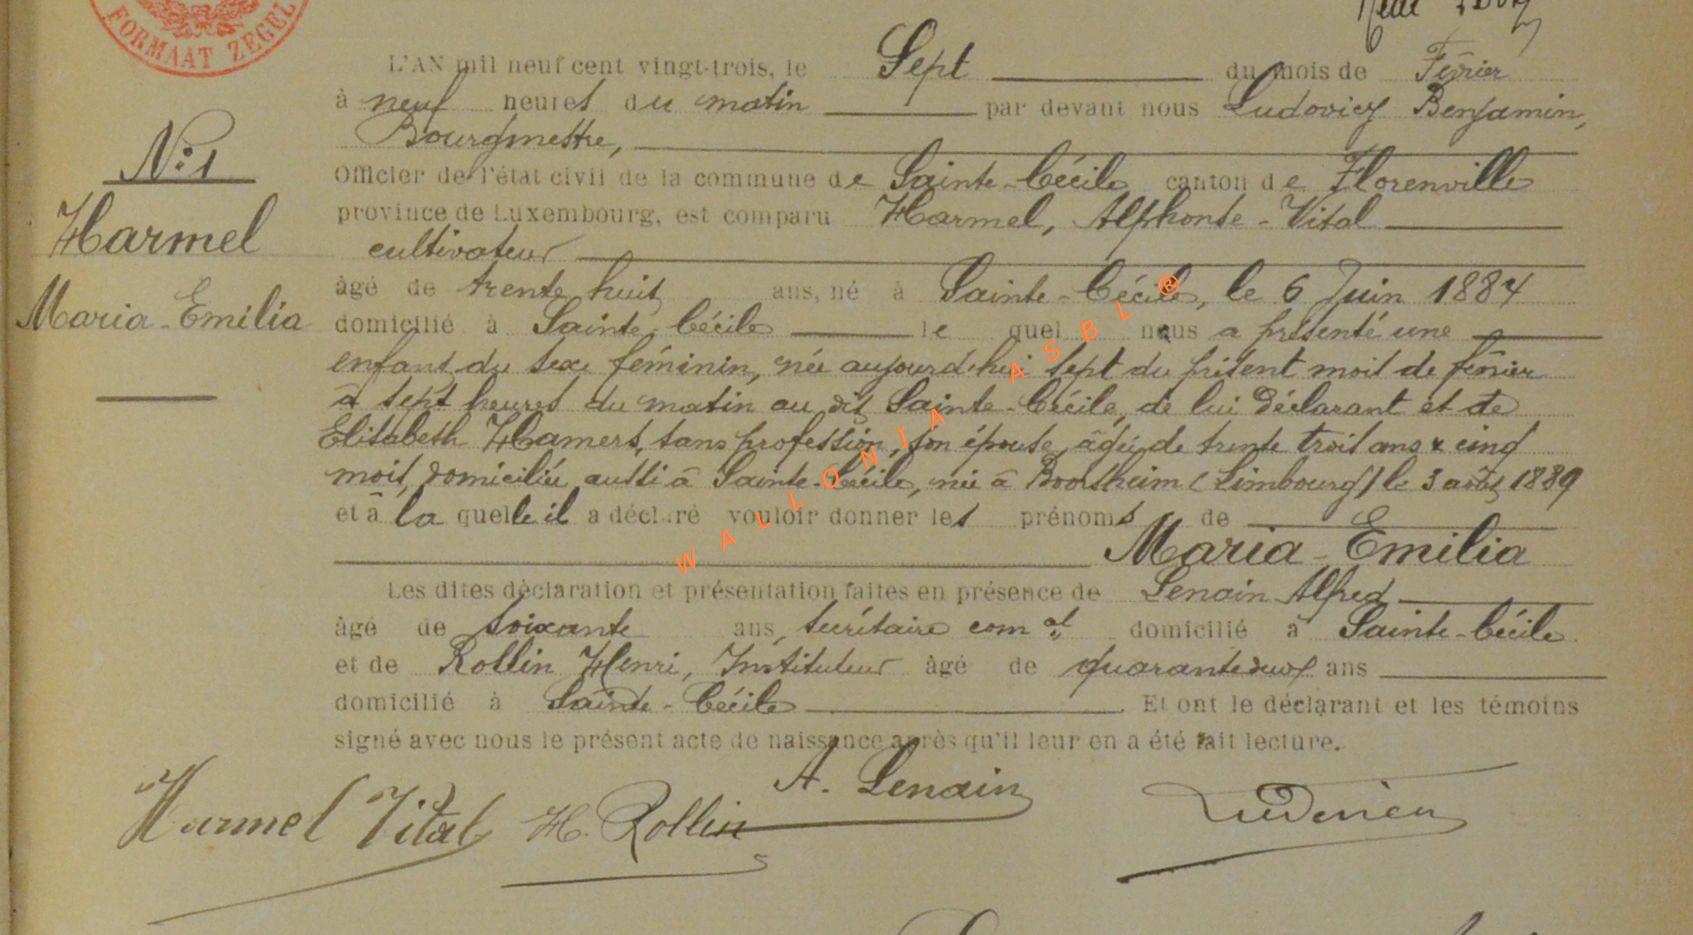 FORMAAT ZEGEL
L'AN mil neuf cent vingt-trois, le Sept du mois de Février
à neuf heures du matin par devant nous Ludovicy Benjamin,
Bourgmestre,
Officier de l'état civil de la commune de Sainte-Cécile canton de Florenville
province de Luxembourg, est comparu Harmel, Alphonse-Vital
cultivateur
âgé de trente huit ans, né à Sainte-Cécile, le 6 Juin 1884
domicilié à Sainte Cécile le quel nous a présenté une
enfant du sexe féminin, née aujourd'hui sept du présent mois de février
à sept heures du matin au dit Sainte-Cécile, de lui déclarant et de
Elisabeth Hamers, sans profession, son épouse, âgée de trente trois ans & cinq
mois, domiciliée aussi à Sainte-Cécile, née à Boorsheim (Limbourg) le 3 août 1889
et à la quelle il a déclaré vouloir donner les prénoms de
Maria-Emilia
Les dites déclaration et présentation faites en présence de Lenain Alfred
âgé de soixante ans, secrétaire comal domicilié à Sainte-Cécile
et de Rollin Henri, Instituteur âgé de quarante deux ans
domicilié à Sainte-Cécile Et ont le déclarant et les témoins
signé avec nous le présent acte de naissance après qu'il leur en a été fait lecture.
N° 1
Harmel
Maria-Emilia
A. Lenain
Harmel Vital H. Rollin
WALLONIA ASBL ®